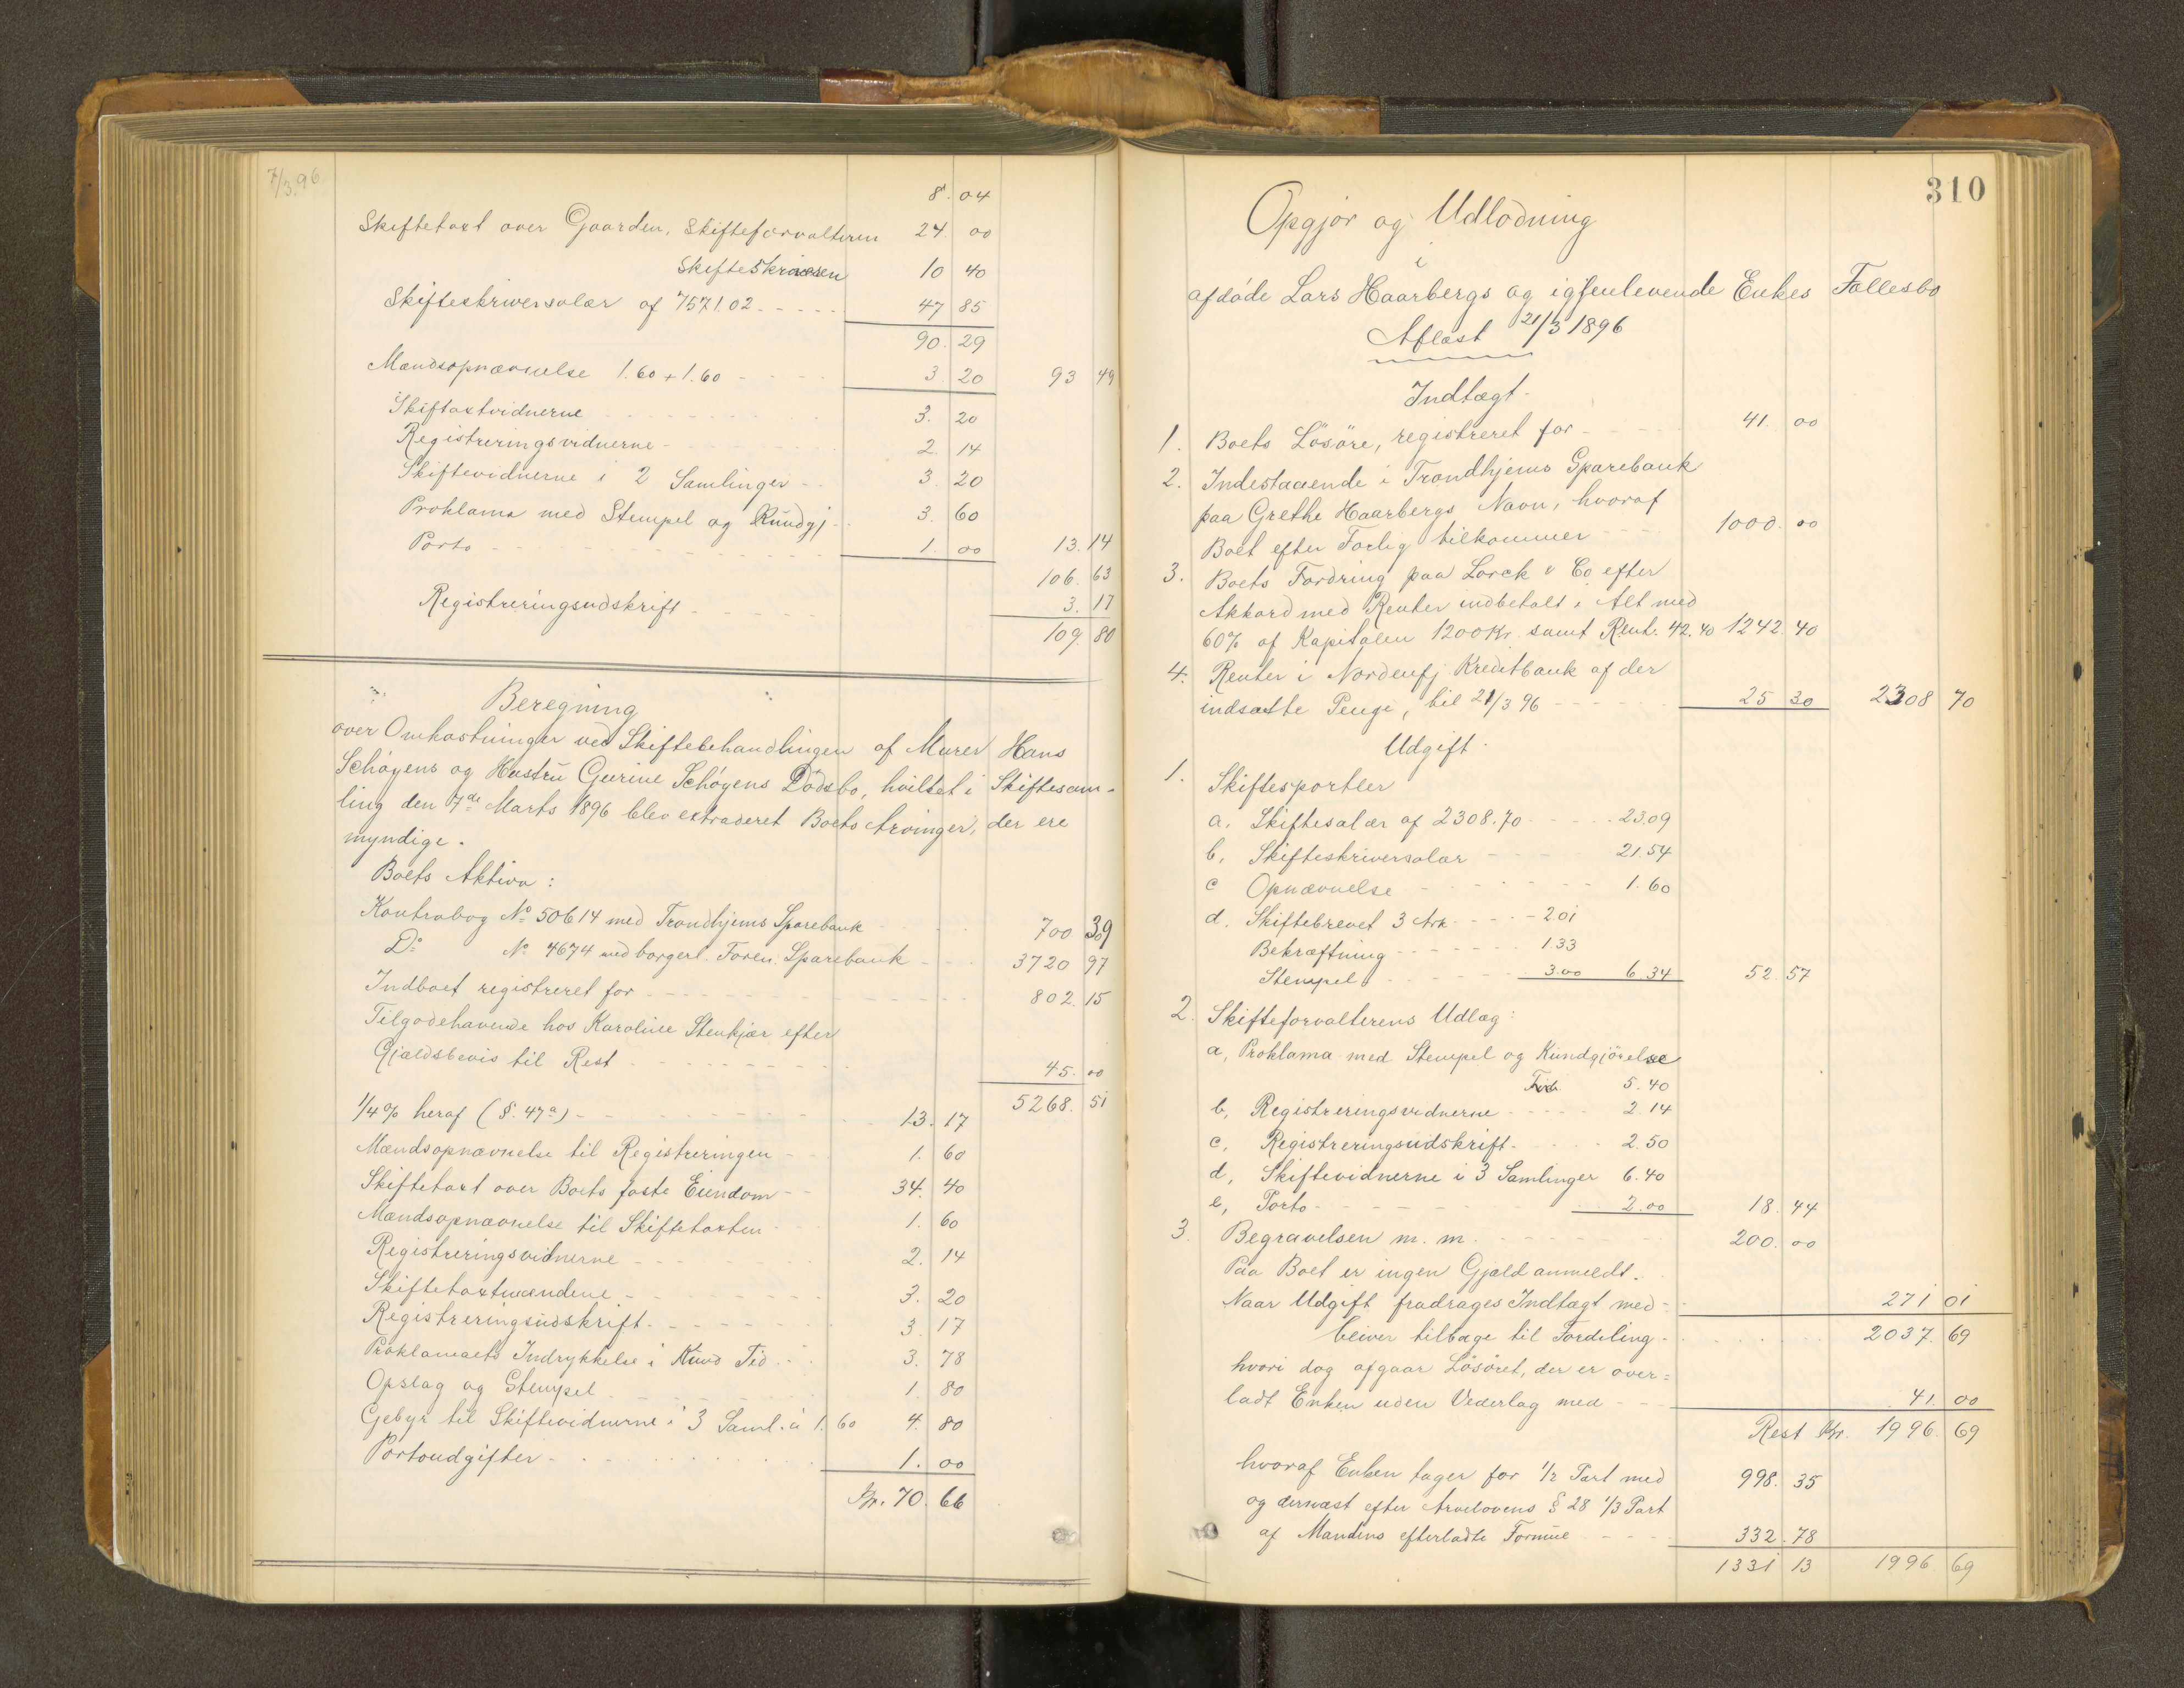 7/3.96
8. 04
Skiftetaxt over Gaarden, Skifteforvalteren 24. 00
Skifteskriveren 10 40
Skifteskriversalær af 7571.02 - - - - - 47 85
90. 29
Mændsopnævnelse 1.60 + 1.60 - - - - 3. 20 93 49
Skiftaxtvidnerne - - - - - - - 3. 20
Registreringsvidnerne - - - - 2. 14
Skiftevidnerne i 2 Samlinger - - 3. 20
Proklama med Stempel og Kundgj - - 3. 60
Porto - - - - - - - - - - 1. 00 13. 14
106. 63
Registreringsudskrift - - - - - - 3. 17
109. 80
Beregning
over Omkostninger ved Skiftebehandlingen af Murer Hans
Schøyens og Hustru Gurine Schøyens Dødsbo, hvilket i Skiftesam-
ling den 7de Marts 1896 blev extraderet Boets Arvinger, der ere
myndige.
Boets Aktiva:
Kontrabog No 50614 med Trondhjems Sparebank - - - 700 39
Do No 4674 med borgerl. Foren. Sparebank - - - 3720 97
Indboet registreret for - - - - - - - - - - - 802. 15
Tilgodehavende hos Karoline Stenkjær efter
Gjældsbevis til Rest - - - - - - - - - 45. 00
5268. 51
1/4 % heraf (§. 47a) - - - - - - - 13. 17
Mændsopnævnelse til Registreringen - - 1. 60
Skiftetaxt over Boets faste Eiendom - - 34. 40
Mændsopnævnelse til Skiftetaxten - - - 1. 60
Registreringsvidnerne - - - - - - - 2. 14
Skiftetaxtmændene - - - - - - - - 3. 20
Registreringsudskrift - - - - - - - 3. 17
Proklamaets Indrykkelse i Kund Tid - - 3. 78
Opslag og Stempel - - - - - - - - 1. 80
Gebyr til Skiftevidnerne i 3 Saml. à 1.60 4. 80
Portoudgifter - - - - - - - - - - 1. 00
Kr. 70. 66
310
Opgjør og Udlodning
i
afdøde Lars Haarbergs og igjenlevende Enkes Fællesbo
Aflæst 21/3 1896
Indtægt -
1. Boets Løsøre, registreret for - - - - 41. 00
2. Indestaaende i Trondhjems Sparebank
paa Grethe Haarbergs Navn, hvoraf
Boet efter Forlig tilkommer - - - 1000. 00
3. Boets Fordring paa Lorck & Co efter
Akkord med Renter indbetalt i Alt med
60% af Kapitalen 1200 Kr. samt Rent. 42.40 1242. 40
4. Renter i Nordenfj. Kreditbank af der
indsatte Penge, til 21/3 96 - - - - - 25 30 2308 70
Udgift -
1. Skiftesportler
a. Skiftesalær af 2308.70 - - - - - 23.09
b, Skifteskriversalær - - - - 21.54
c Opnævnelse - - - - - - - 1.60
d. Skiftebrevet 3 Ark - - - - 2.01
Bekræftning - - - - - - - 1.33
Stempel - - - - - - 3.00 6.34 52. 57
2. Skifteforvalterens Udlæg:
a, Proklama med Stempel og Kundgjørelse
5.40
b, Registreringsvidnerne - - - - - 2.14
c, Registreringsudskrift - - - - - 2.50
d, Skiftevidnerne i 3 Samlinger 6.40
e, Porto - - - - - - - - - - - 2.00 18. 44
3. Begravelsen m. m. - - - - - - - 200. 00
Paa Boet er ingen Gjæld anmeldt.
Naar Udgift fradrages Indtægt med - - 271 01
bliver tilbage til Fordeling - - - - - - 2037. 69
hvori dog afgaar Løsøret, der er over=
ladt Enken uden Vederlag med - - - 41. 00
Rest Kr. 1996. 69
hvoraf Enken tager for 1/2 Part med 998. 35
og dernæst efter Arvelovens § 28 1/3 Part
af Mandens efterladte Formue - - - - 332. 78
1331 13 1996 69